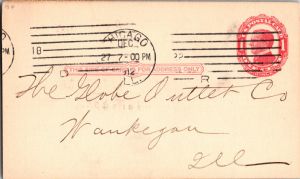 CHICAGO
DEC
27 7-00 PM
'12
ILL.
THIS SIDE OF CARD IS FOR ADDRESS ONLY
The Globe Outlet Co
Waukegan
Ill